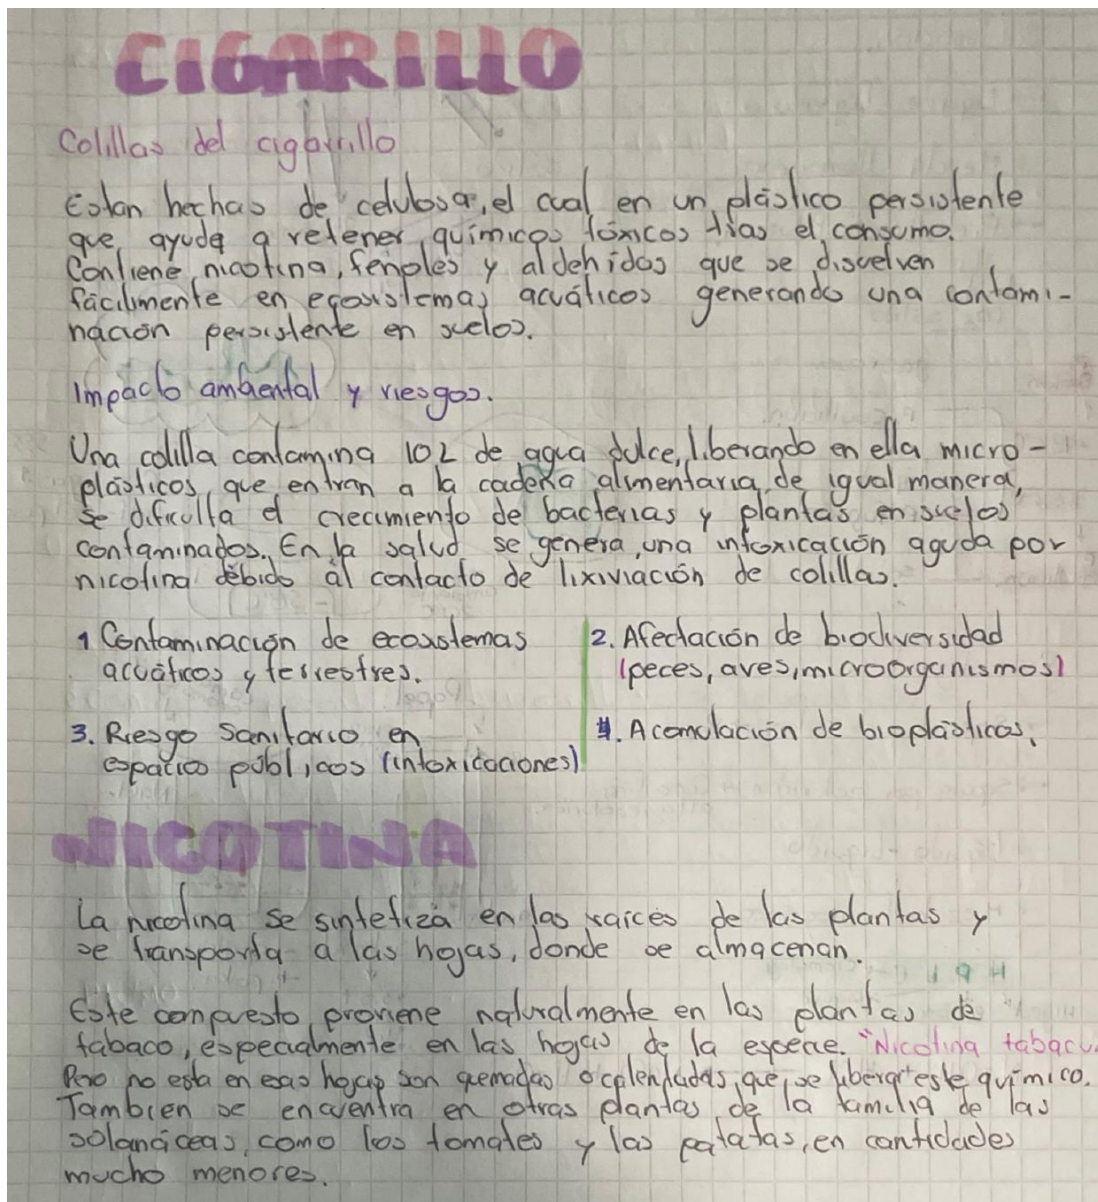 CIGARILLO
Colillas del cigarrillo
Estan hechas de celulosa, el cual en un plástico persistente
que ayuda a retener químicos tóxicos tras el consumo.
Contiene nicotina, fenoles y aldehidos que se disuelven
fácilmente en ecosistemas acuáticos generando una contami-
nación persistente en suelos.
Impacto ambiental y riesgos.
Una colilla contamina 10L de agua dulce, liberando en ella micro-
plásticos que entran a la cadena alimentaria, de igual manera,
se dificulta el crecimiento de bacterias y plantas en suelos
contaminados. En la salud se genera una intoxicación aguda por
nicotina debido al contacto de lixiviación de colillas.
1 Contaminación de ecosistemas
acuáticos y terrestres.
2. Afectación de biodiversidad
(peces, aves, microorganismos)
3. Riesgo Sanitario en
espacios públicos (intoxicaciones)
4. Acomulación de bioplásticos.
NICOTINA
La nicotina se sintetiza en las raíces de las plantas y
se transporta a las hojas, donde se almacenan.
Este compuesto proviene naturalmente en las plantas de
tabaco, especialmente en las hojas de la especie. "Nicotina tabacu
Pero no esta en esas hojas son quemadas o calentadas, que se libera este químico.
Tambien se encuentra en otras plantas de la familia de las
solanáceas, como los tomates y las patatas, en cantidades
mucho menores.